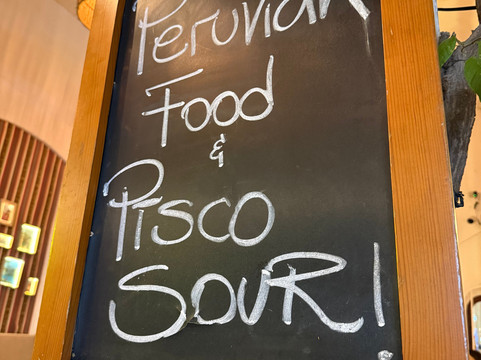 Peruvian
Food
&
Pisco
SouR!